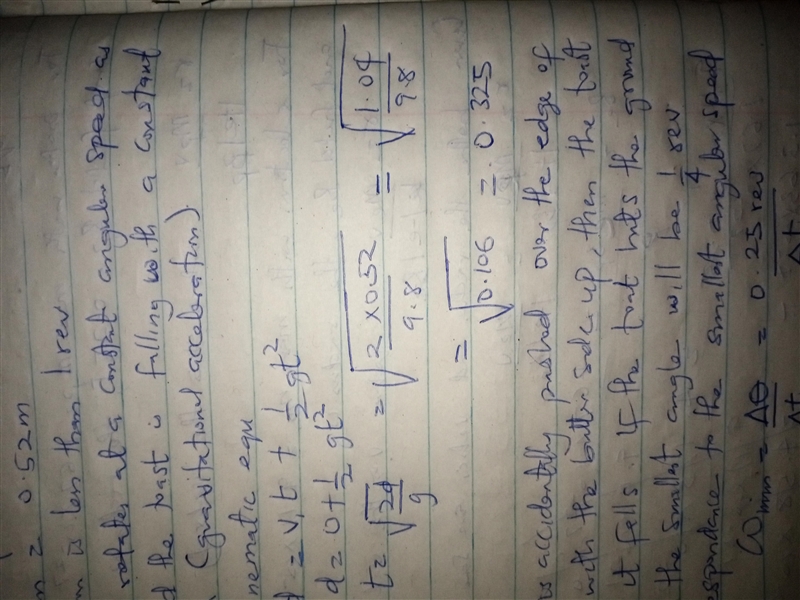 m = 0.52m
m is less than 1 rev
rotates at a constant angular speed as
d the toast is falling with a constant
(gravitational acceleration)
nematic equ
d = Vit + 1/2 gt²
d = 0 + 1/2 gt²
t = √(2d/g) = √(2 x 0.52 / 9.8) = √(1.04 / 9.8)
= √0.106 = 0.325
is accidentally pushed over the edge of
with the butter side up, then the toast
it falls. If the toast hits the ground
the smallest angle will be 1/4 rev
espondance to the smallest angular speed
ωmin = Δθ/Δt = 0.25 rev/Δt